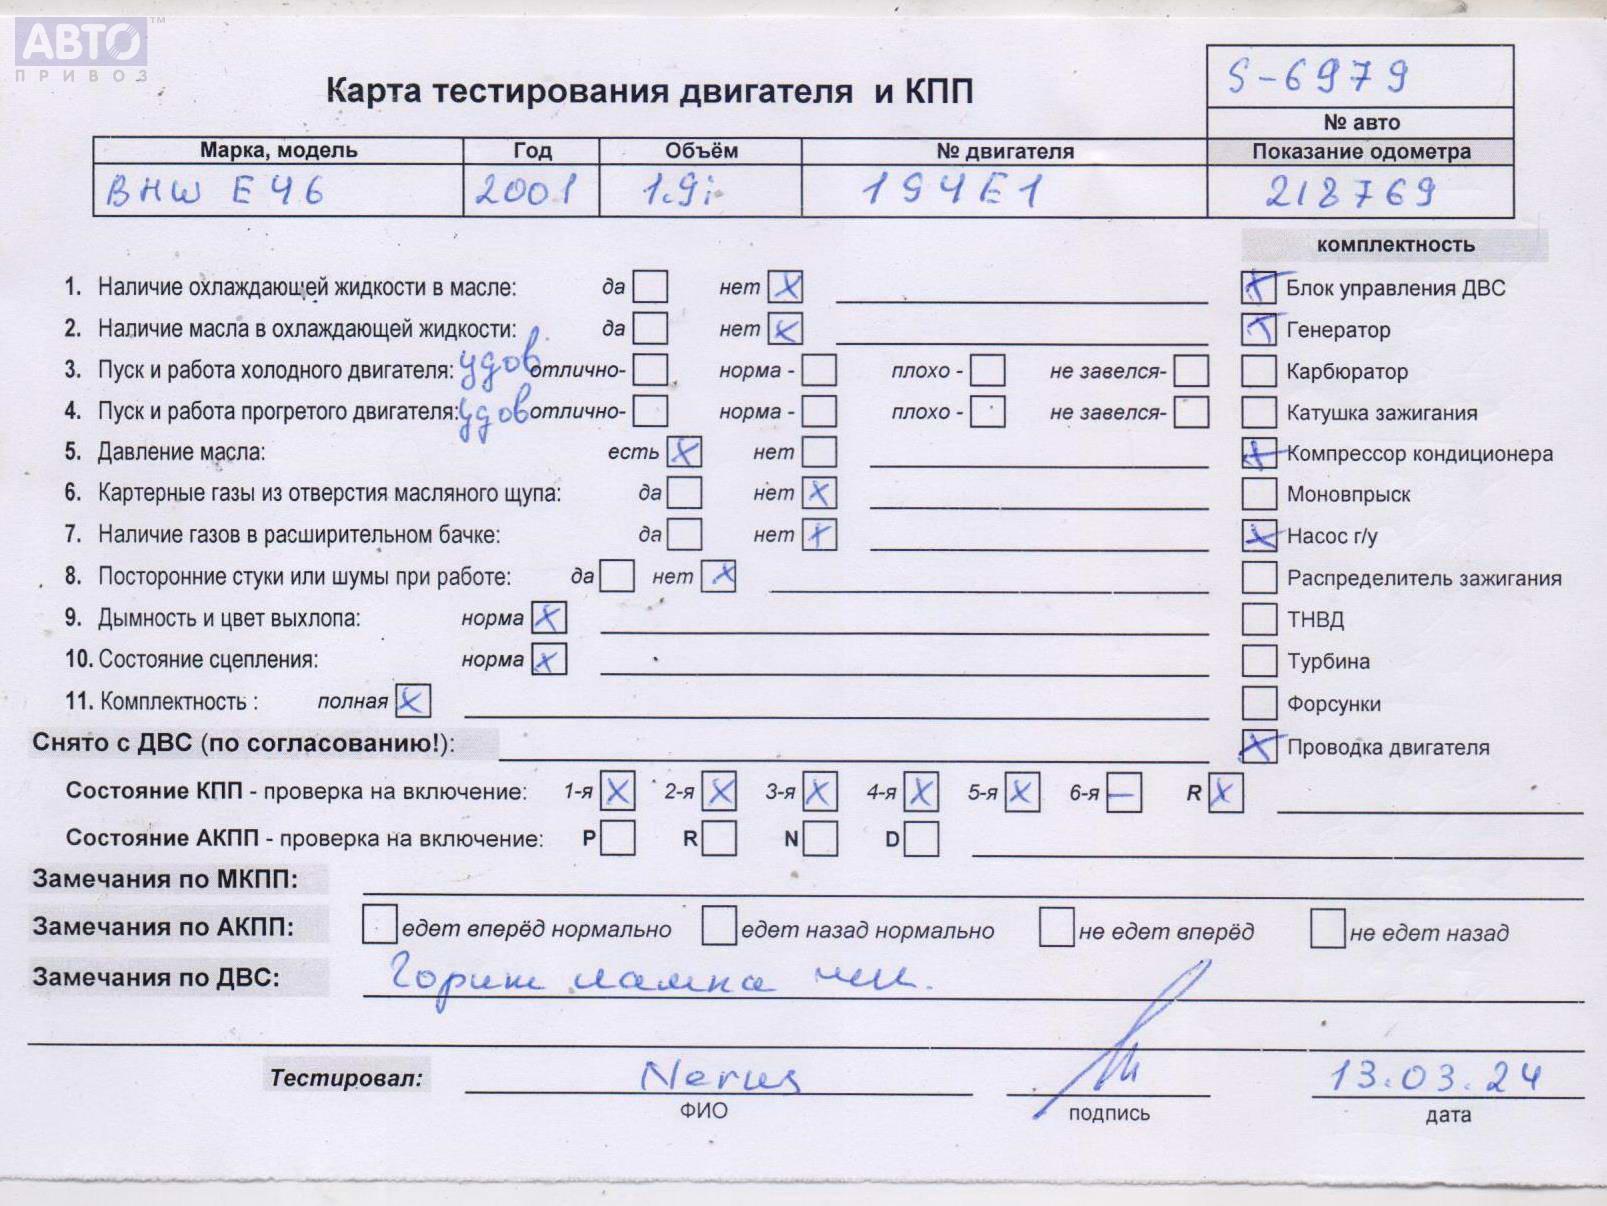 АВТО™
ПРИВОЗ
S-6979
Карта тестирования двигателя и КПП
№ авто
Марка, модель Год Объём № двигателя Показание одометра
BMW E46 2001 1.9i 194E1 218769
комплектность
1. Наличие охлаждающей жидкости в масле: да нет X Блок управления ДВС
2. Наличие масла в охлаждающей жидкости: да нет X Генератор
3. Пуск и работа холодного двигателя: удов отлично- норма - плохо - не завелся- Карбюратор
4. Пуск и работа прогретого двигателя: удов отлично- норма - плохо - не завелся- Катушка зажигания
5. Давление масла: есть X нет Компрессор кондиционера
6. Картерные газы из отверстия масляного щупа: да нет X Моновпрыск
7. Наличие газов в расширительном бачке: да нет X Насос г/у
8. Посторонние стуки или шумы при работе: да нет X Распределитель зажигания
9. Дымность и цвет выхлопа: норма X ТНВД
10. Состояние сцепления: норма X Турбина
11. Комплектность : полная X Форсунки
Снято с ДВС (по согласованию!): Проводка двигателя
Состояние КПП - проверка на включение: 1-я X 2-я X 3-я X 4-я X 5-я X 6-я — R X
Состояние АКПП - проверка на включение: P R N D
Замечания по МКПП:
Замечания по АКПП: едет вперёд нормально едет назад нормально не едет вперёд не едет назад
Замечания по ДВС: Горит лампа
Тестировал: 13.03.24
ФИО подпись дата